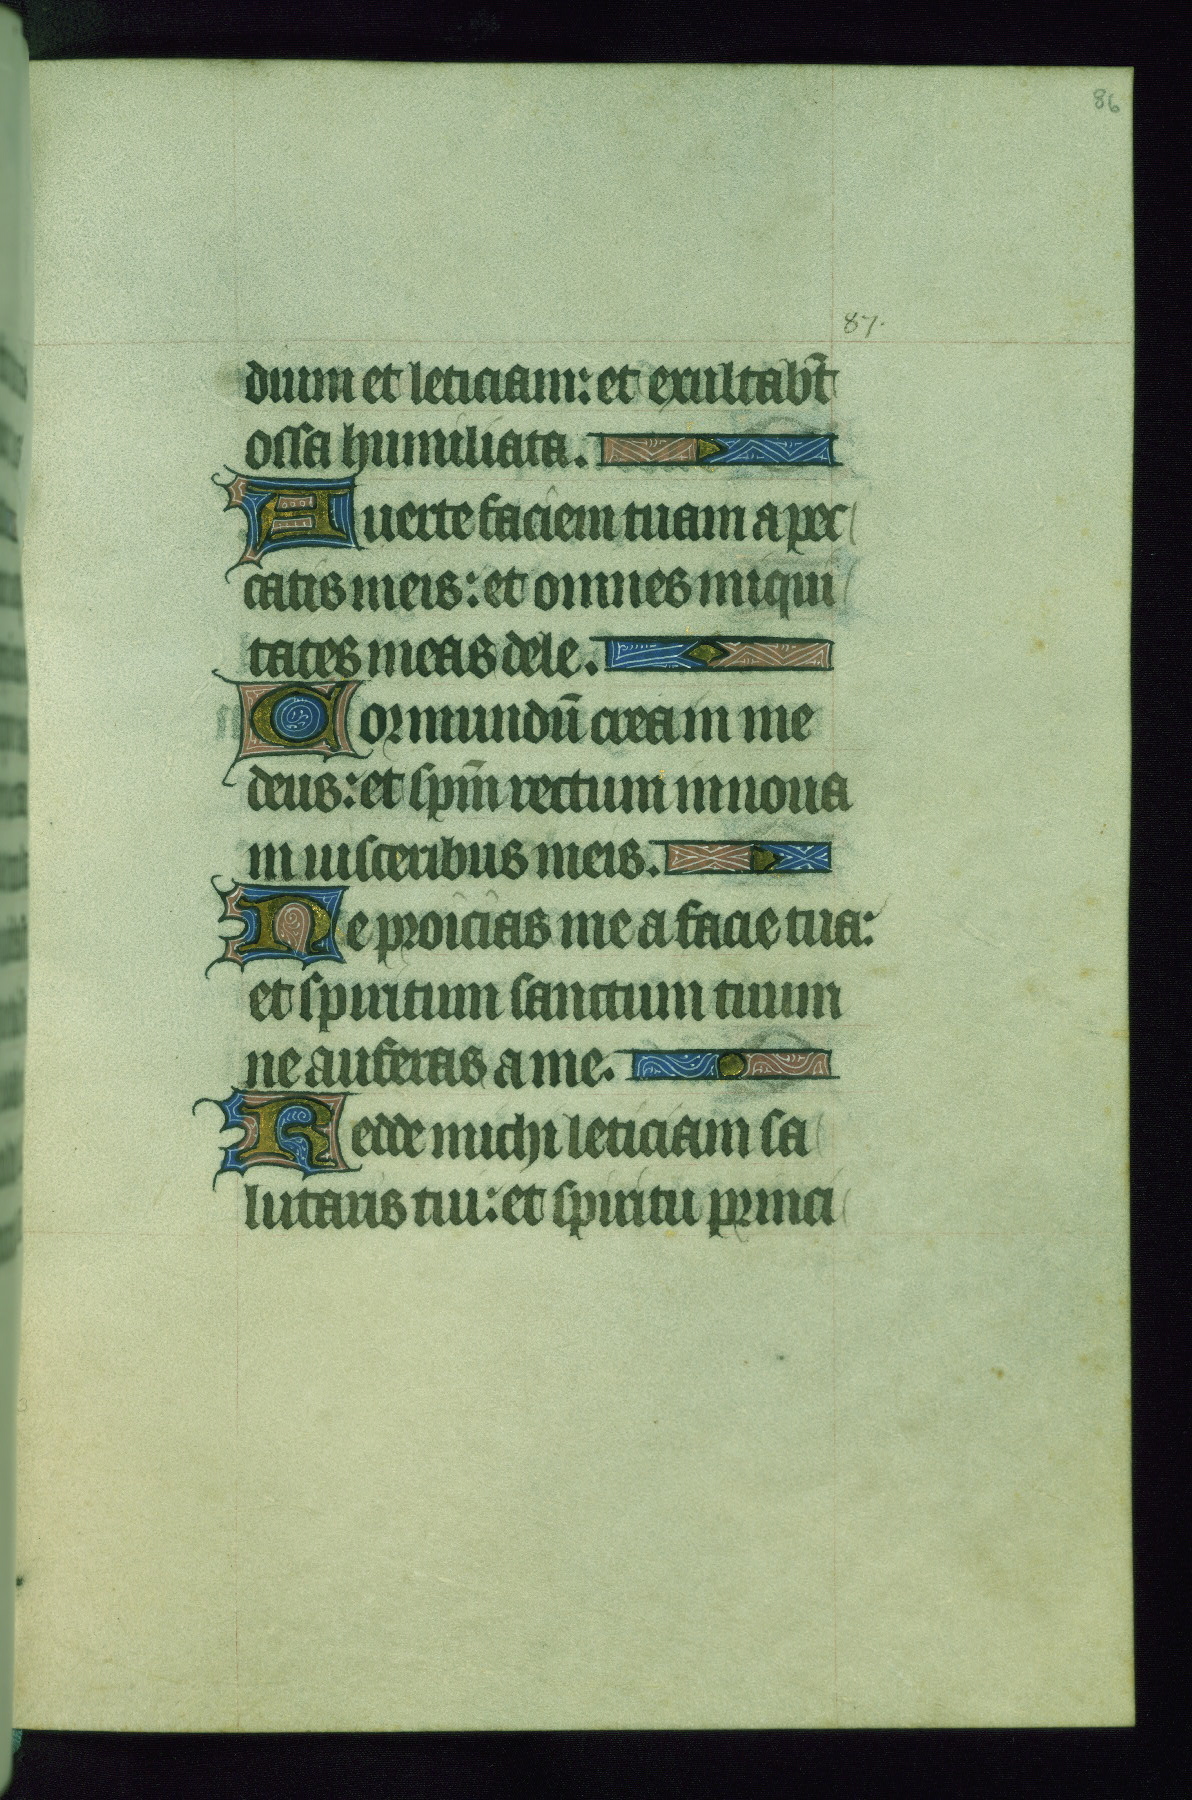 86
87.
dium et leticiam: et exultabt̄
ossa humiliata.
Auerte faciem tuam a pec
catis meis: et omnes iniqui
tates meas dele.
Cor mundū crea in me
deus: et sp̄m rectum innoua
in uisceribus meis.
Ne proicias me a facie tua:
et spiritum sanctum tuum
ne auferas a me.
Redde michi leticiam sa
lutaris tui: et spiritu princi